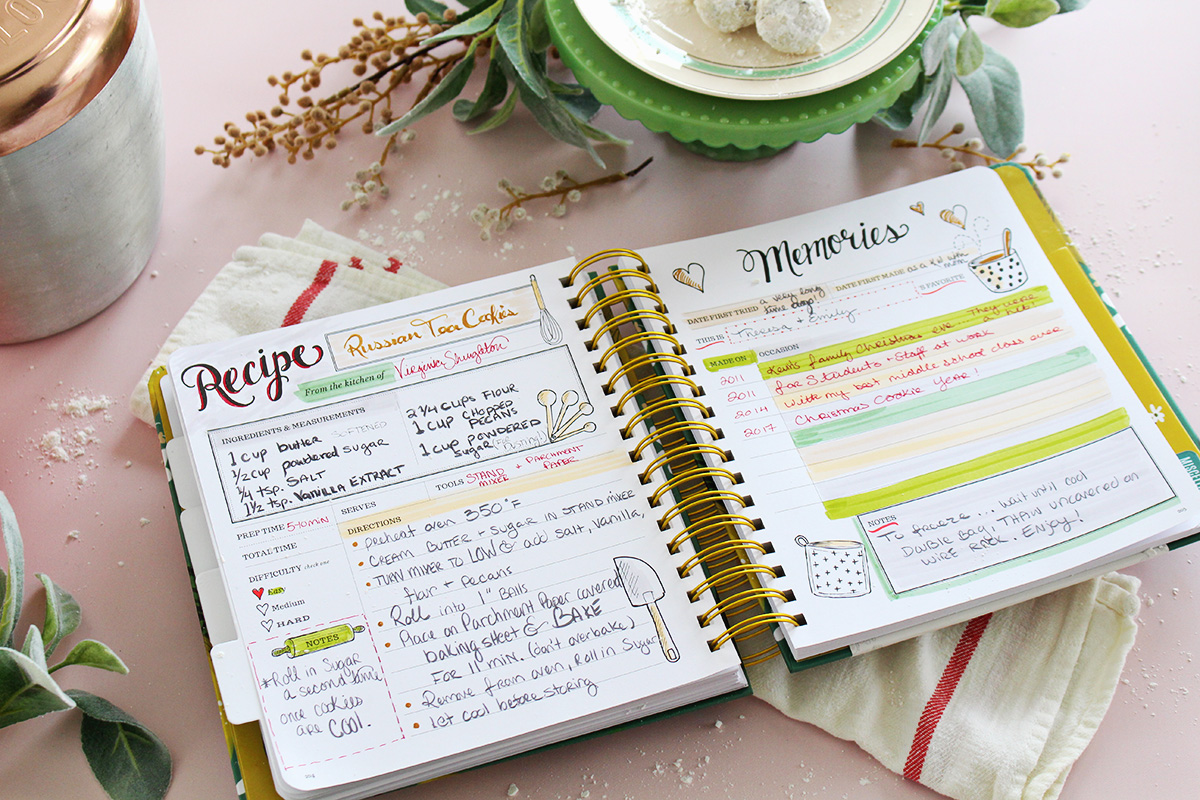 Recipe
Russian Tea Cookies
From the kitchen of Virginia Shughston
INGREDIENTS & MEASUREMENTS
1 cup butter SOFTENED
1/2 cup powdered sugar
1/4 tsp. SALT
1 1/2 tsp. VANILLA EXTRACT
2 1/4 CUPS FLOUR
1 CUP CHOPPED
PECANS
1 CUP POWDERED
SUGAR (for dusting!)
PREP TIME 5-10 min
SERVES
TOOLS STAND MIXER + PARCHMENT PAPER
TOTAL TIME
DIFFICULTY check one
Easy
Medium
HARD
DIRECTIONS
• preheat oven 350°F
• CREAM BUTTER + SUGAR IN STAND MIXER
• TURN MIXER TO LOW & add salt, vanilla,
flour + pecans
• Roll into 1" BALLS
• Place on Parchment Paper covered
baking sheet & BAKE
FOR 11 min. (don't overbake)
• Remove from oven, Roll in Sugar
• let cool before storing
NOTES
*Roll in Sugar
a second time
once cookies
are cool.
Memories
DATE FIRST TRIED a very long time ago!
DATE FIRST MADE as a kid with mom
THIS IS Theresa + Emily 'S FAVORITE
MADE ON
OCCASION
2011 Kent's family Christmas eve They were a hit!
2011 for Students + Staff at work
2014 with my best middle school class ever
2017 Christmas Cookie Year!
NOTES
To freeze... wait until cool
Double Bag. THAW uncovered on
wire Rack. ENJOY!